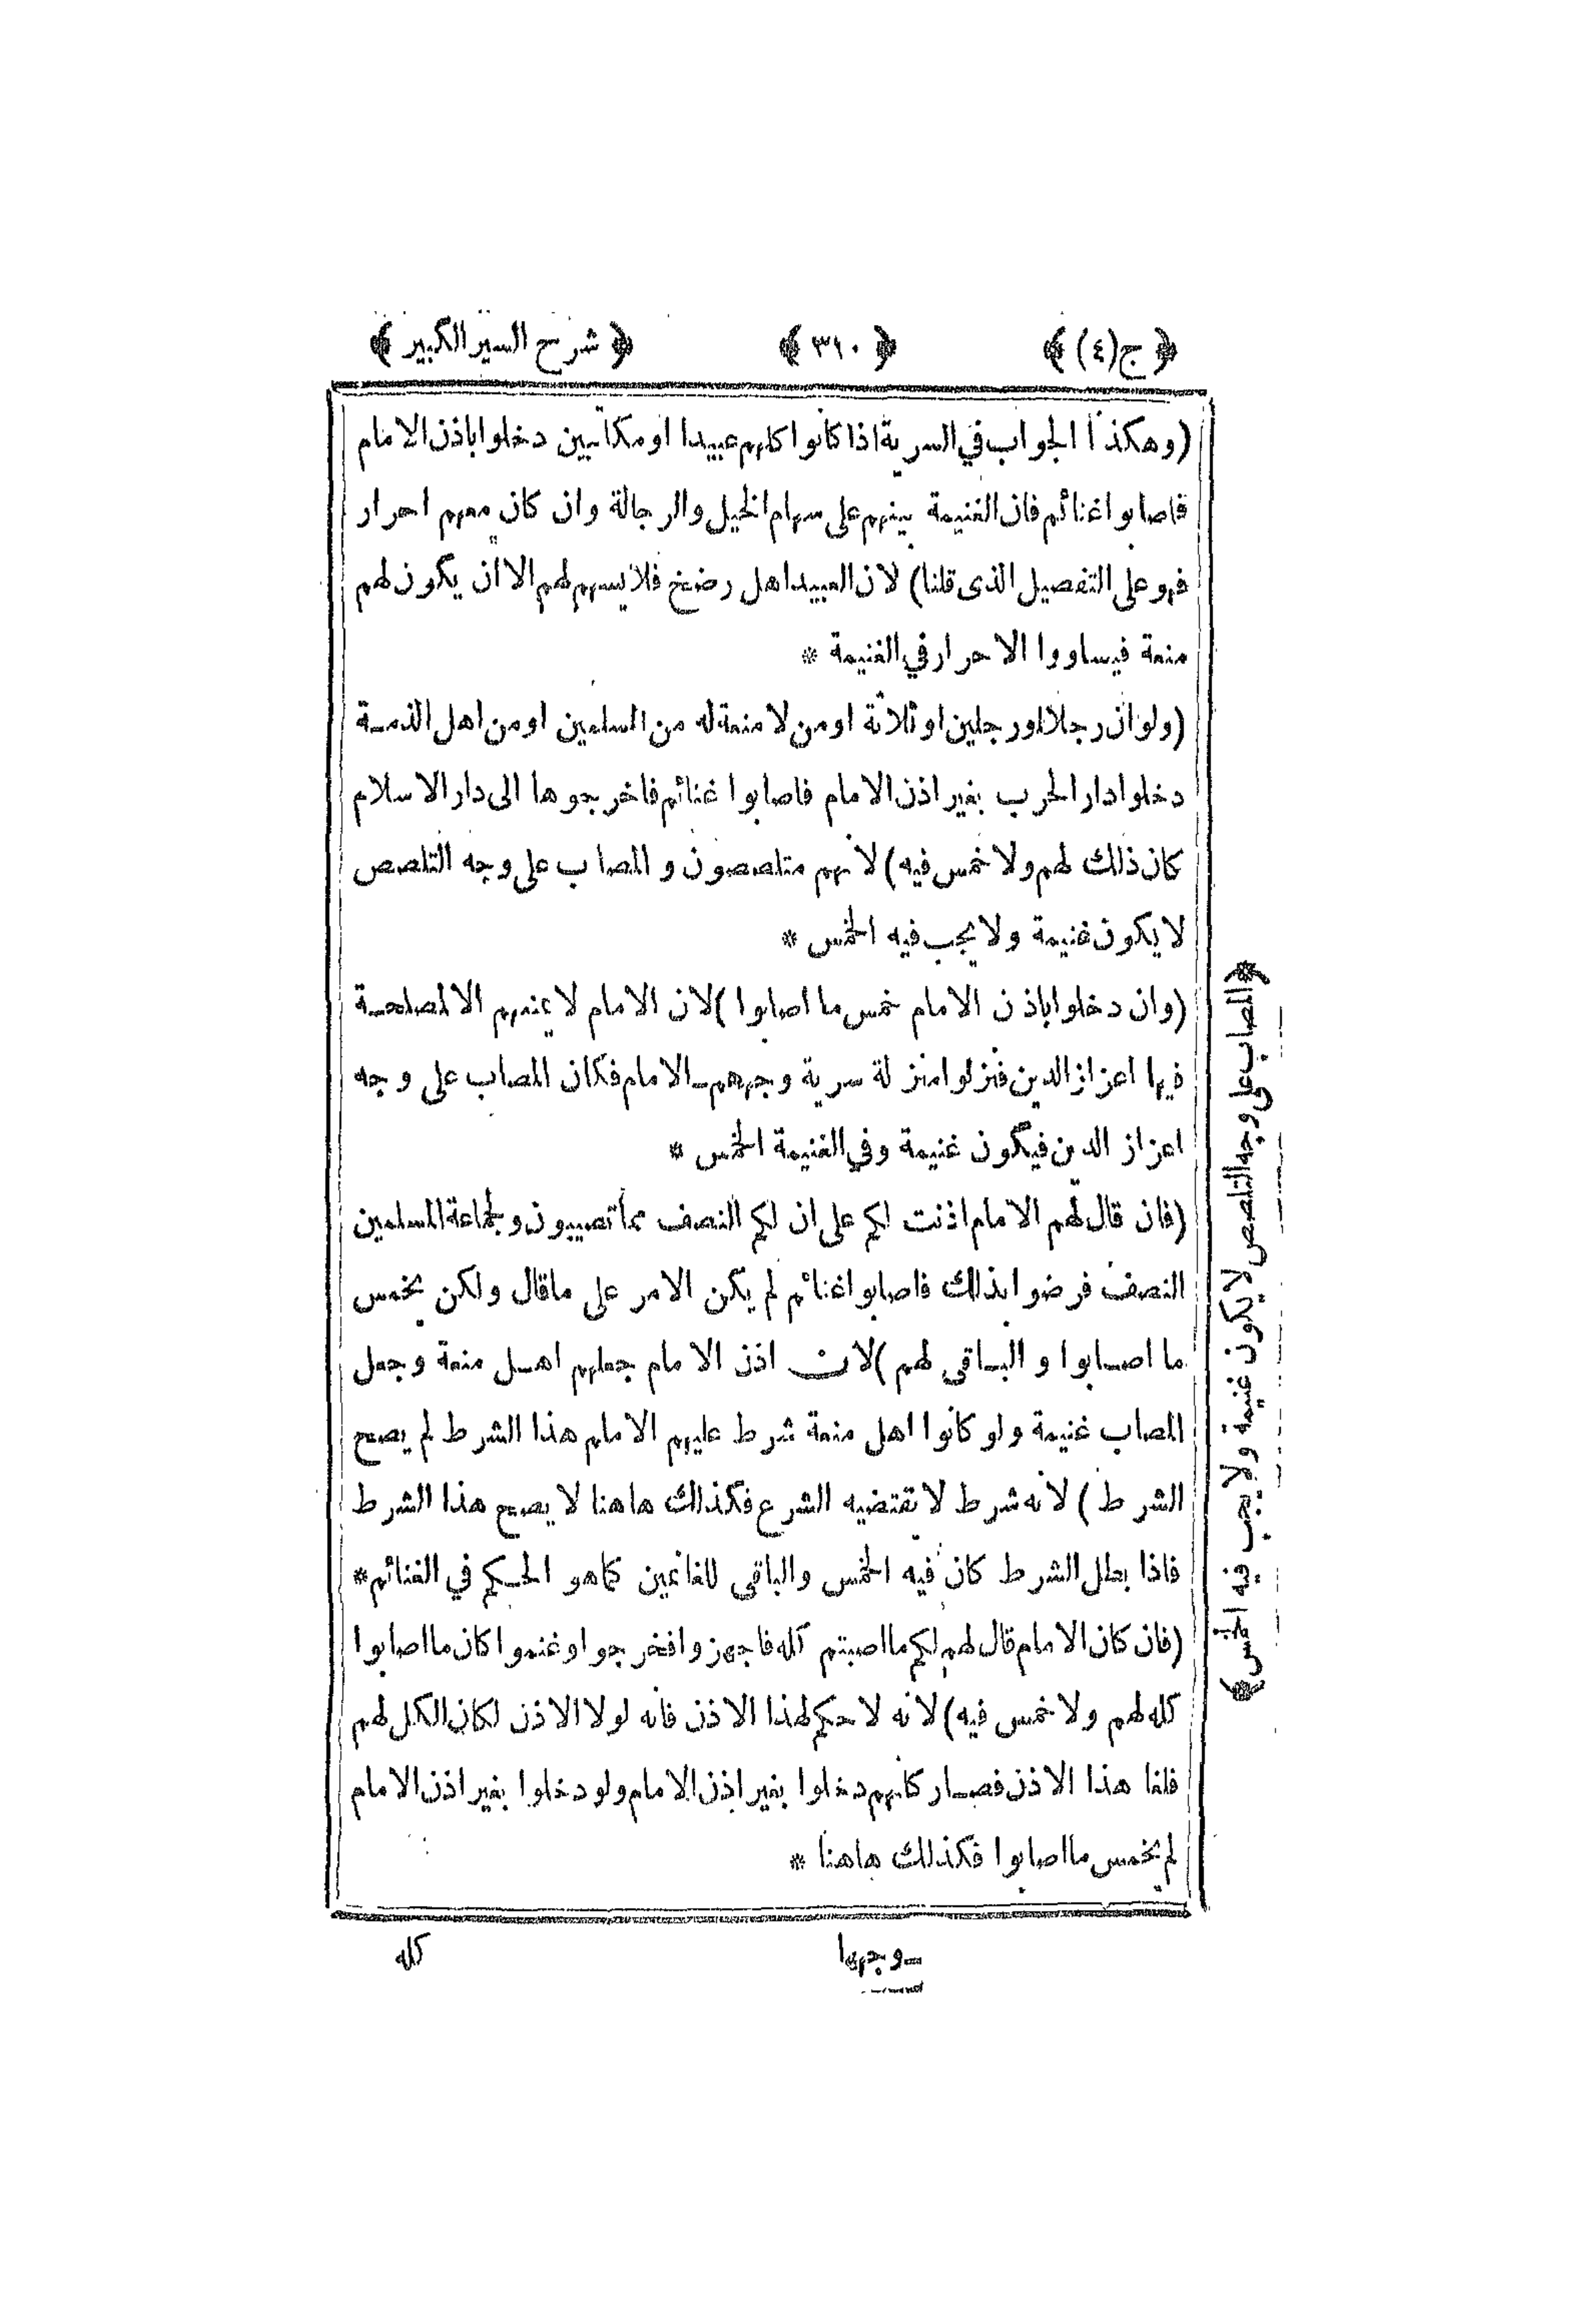 ﴿ ج(٤) ﴾ ﴿ ٣١٠ ﴾ ﴿ شرح السير الكبير ﴾
(وهكذا الجواب في السرية اذا كانوا كلهم عبيدا او مكاتبين دخلوا باذن الامام
فاصابوا غنائم فان الغنيمة بينهم على سهام الخيل والرجالة وان كان معهم احرار
فهو على التفصيل الذى قلنا) لان العبيد اهل رضخ فلا يسهم لهم الا ان يكون لهم
منعة فيساووا الاحرار في الغنيمة *
(ولو ان رجلا او رجلين او ثلاثة او من لا منعة له من المسلمين او من اهل الذمـة
دخلوا دار الحرب بغير اذن الامام فاصابوا غنائم فاخرجوها الى دار الاسلام
كان ذلك لهم ولا خمس فيه) لانهم متلصصون و المصاب على وجه التلصص
لا يكون غنيمة ولا يجب فيه الخمس *
(وان دخلوا باذن الامام خمس ما اصابوا) لان الامام لا يمنعهم الا لمصلحـة
فيها اعزاز الدين فنزلوا منزلة سرية وجههمـ الامام فكان المصاب على وجه
اعزاز الدين فيكون غنيمة وفي الغنيمة الخمس *
(فان قال لهم الامام اذنت لكم على ان لكم النصف مما تصيبون ولجماعة المسلمين
النصف فرضوا بذلك فاصابوا غنائم لم يكن الامر على ما قال ولكن يخمس
ما اصـابوا و البـاقى لهم) لان اذن الامام جعلهم اهـل منعة وجعل
المصاب غنيمة ولو كانوا اهل منعة شرط عليهم الامام هذا الشرط لم يصح
الشرط) لانه شرط لا تقتضيه الشرع فكذلك هاهنا لا يصح هذا الشرط
فاذا بطل الشرط كان فيه الخمس والباقى للغانمين كما هو الحـكم في الغنائم *
(فان كان الامام قال لهم لكم ما اصبتم كله فاجهزوا فخرجوا وغنموا كان ما اصابوا
كله لهم ولا خمس فيه) لانه لا حكم لهذا الاذن فانه لولا الاذن لكان الكل لهم
فلغا هذا الاذن فصـار كانهم دخلوا بغير اذن الامام ولو دخلوا بغير اذن الامام
لم يخمس ما اصابوا فكذلك هاهنا *
﴿المصاب على وجه التلصص لا يكون غنيمة ولا يجب فيه الخمس﴾
ــ وجهها
كله